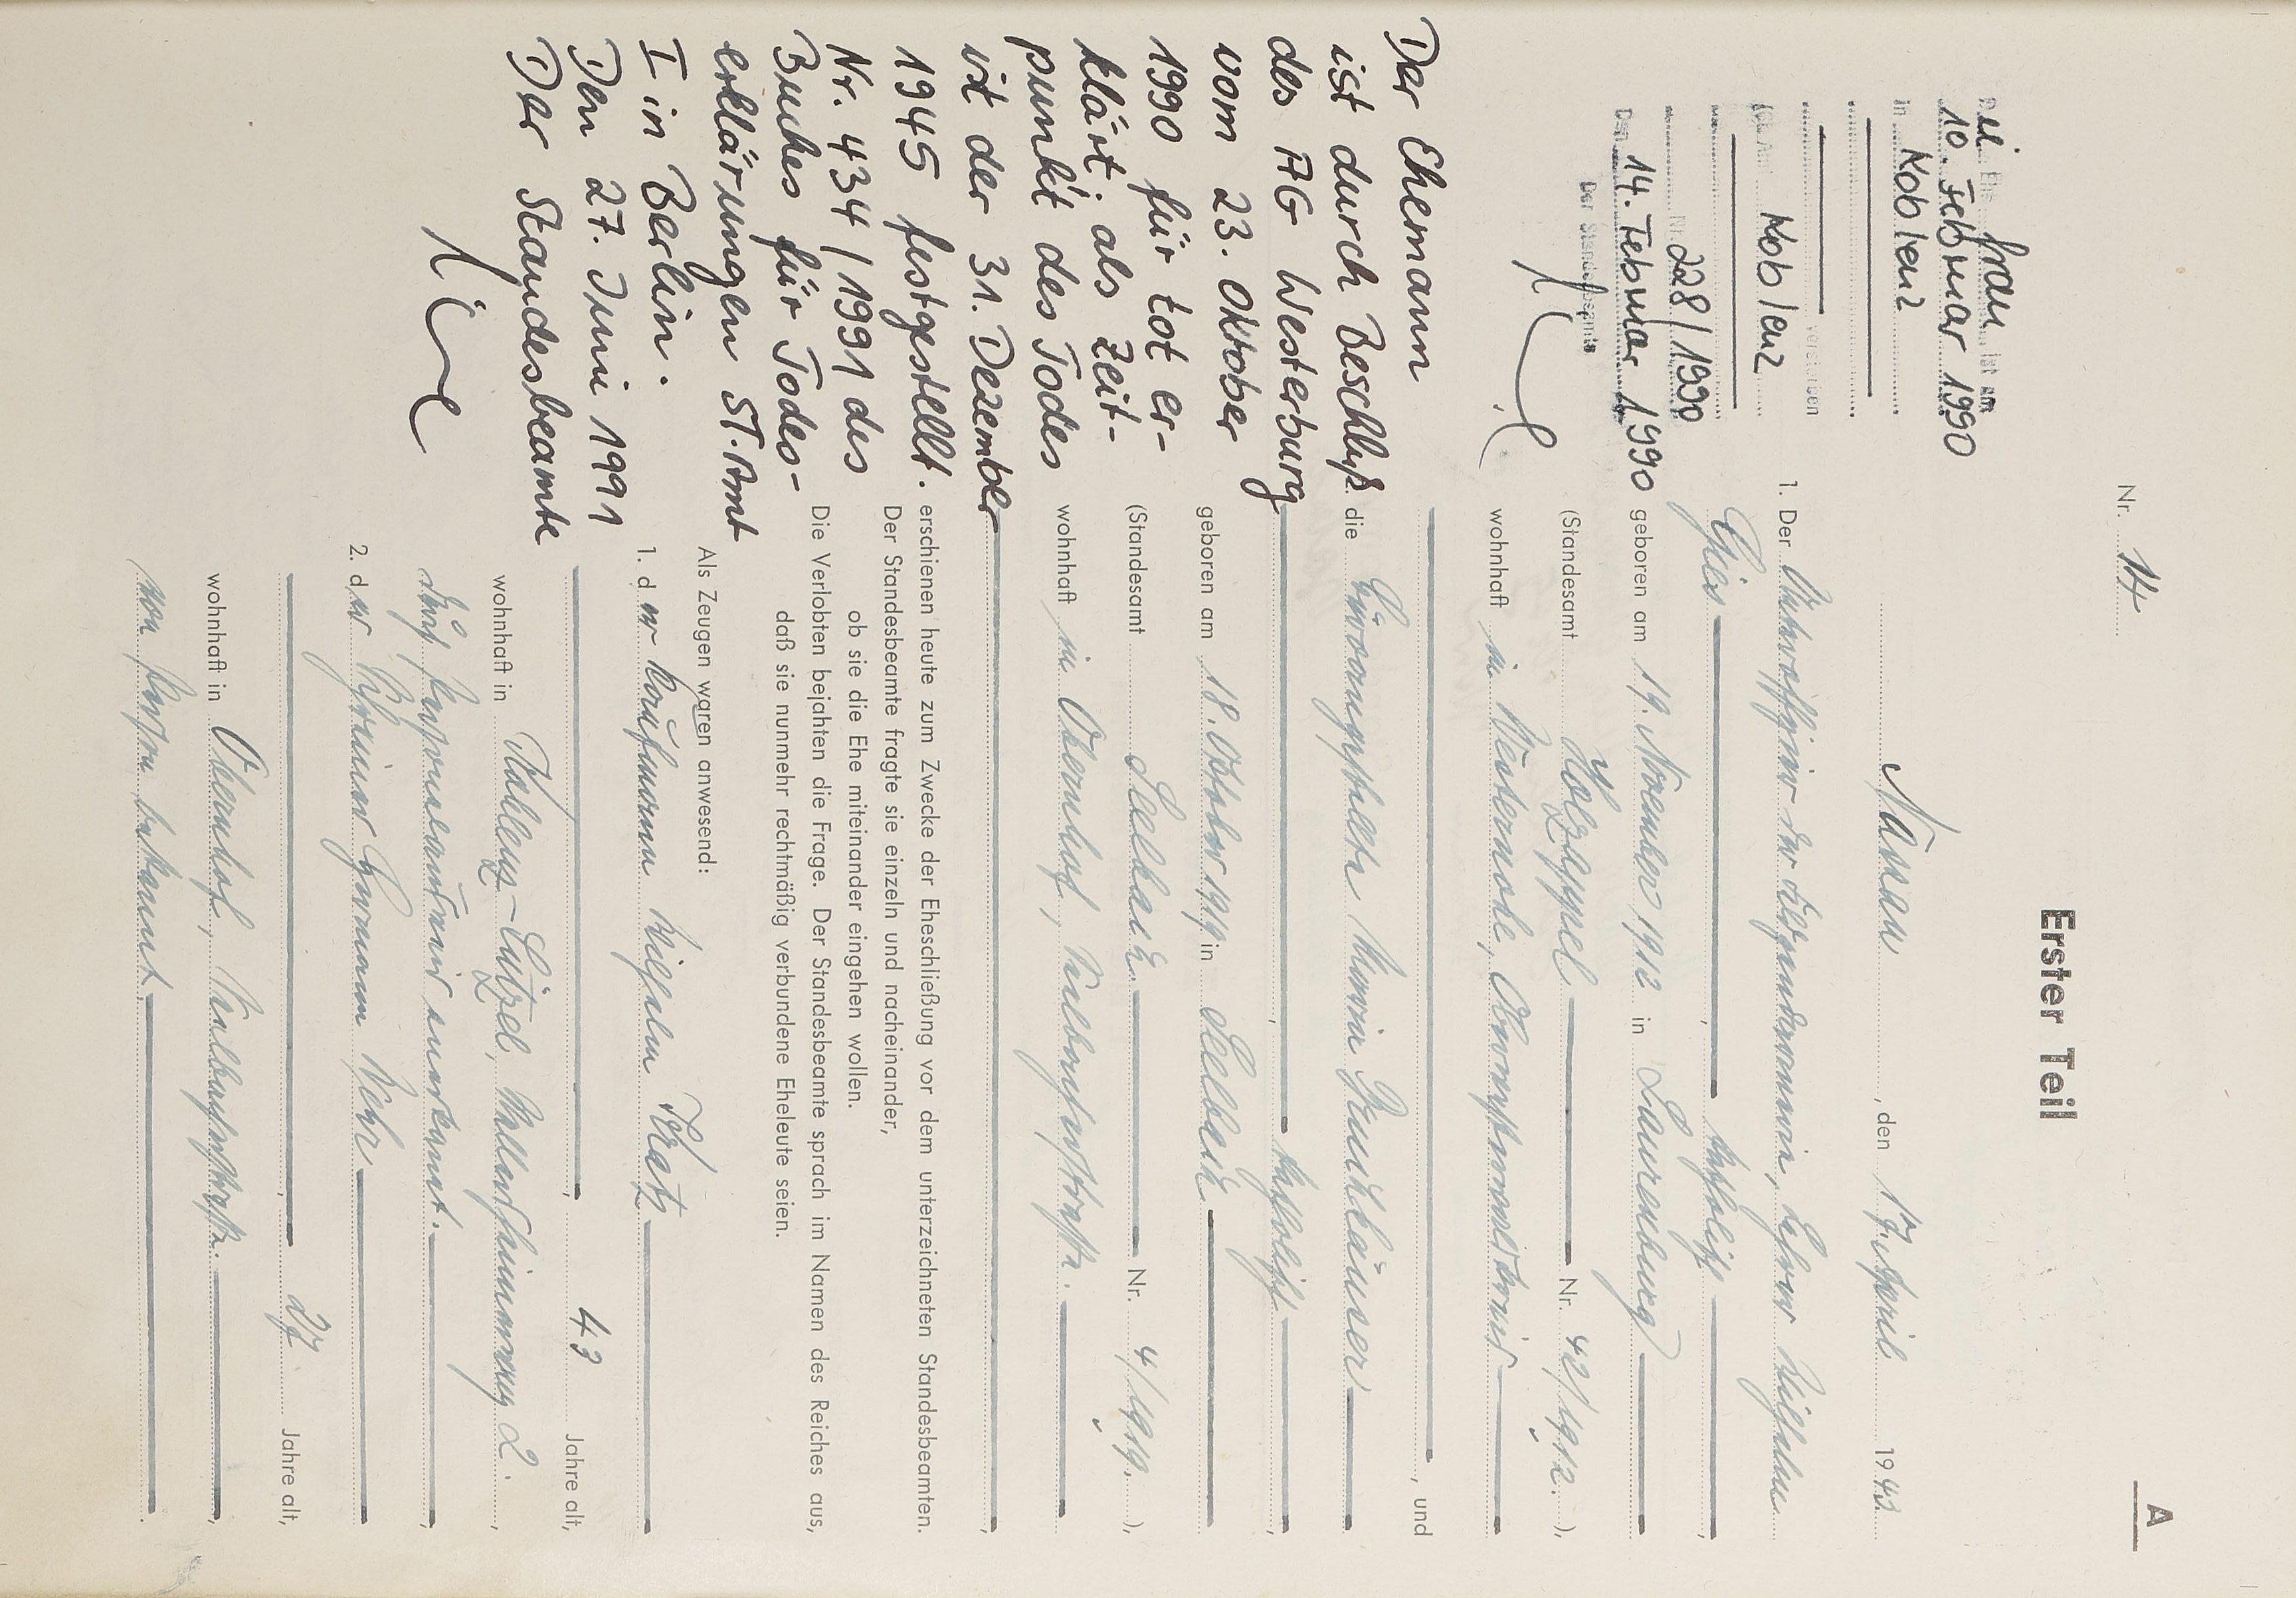 A
Nr. 14
Erster Teil
Nassau, den 17. April 1943.
1. Der
Gies, katholisch,
geboren am 19. November 1912 in Laurenburg
(Standesamt Holzappel Nr. 42/1912.),
wohnhaft in Westernohe,
, und
die Maria Brückhäuser
, katholisch,
geboren am 18. Oktober 1919 in Seelbach,
(Standesamt Seelbach Nr. 4/1919.),
wohnhaft in Obernhof,
erschienen heute zum Zwecke der Eheschließung vor dem unterzeichneten Standesbeamten.
Der Standesbeamte fragte sie einzeln und nacheinander,
ob sie die Ehe miteinander eingehen wollen.
Die Verlobten bejahten die Frage. Der Standesbeamte sprach im Namen des Reiches aus,
daß sie nunmehr rechtmäßig verbundene Eheleute seien.
Als Zeugen waren anwesend:
1. der Kaufmann Wilhelm
, 43 Jahre alt,
wohnhaft in Koblenz-Lützel, 2.,
anerkannt.,
2. der Hermann
, 27 Jahre alt,
wohnhaft in Obernhof,,
von Person bekannt.
Die Ehefrau ist am
10. Februar 1990
in Koblenz
verstorben
(St. A. Koblenz
Nr. 228/1990
Den 14. Februar 1990
Der Standesbeamte
Der Ehemann
ist durch Beschluß
des AG Westerburg
vom 23. Oktober
1990 für tot er-
klärt; als Zeit-
punkt des Todes
ist der 31. Dezember
1945 festgestellt.
Nr. 434/1991 des
Buches für Todes-
erklärungen ST.Amt
I in Berlin.
Den 27. Juni 1991
Der Standesbeamte